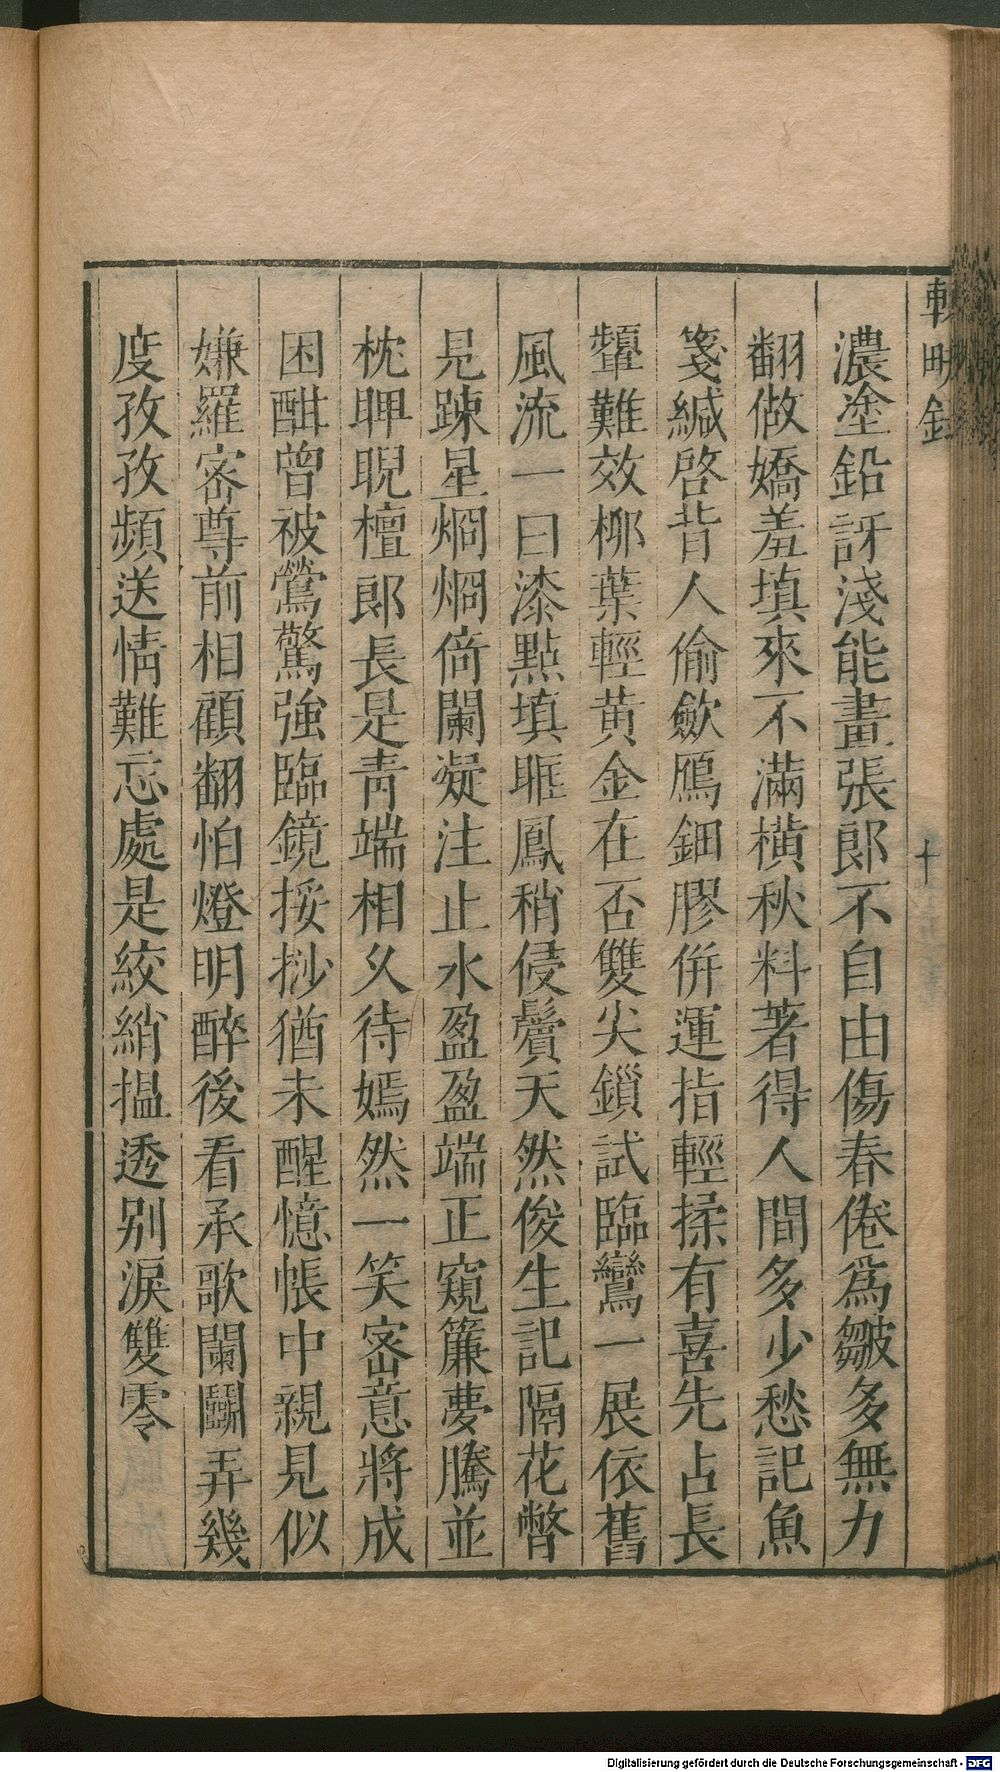 輟畊錄
十
濃塗鉛訝淺能畫張郎不自由傷春倦爲皺多無力
翻做嬌羞填來不滿橫秋料著得人間多少愁記魚
箋緘啓背人偷歛鴈鈿膠倂運指輕揉有喜先占長
顰難效柳葉輕黄金在否雙尖鎖試臨鸞一展依舊
風流一曰漆點填眶鳳稍侵鬢天然俊生記隔花瞥
見踈星烱烱倚闌凝注止水盈盈端正窺簾夢騰並
枕睥睨檀郎長是青端相久待嫣然一笑密意將成
困酣曾被鶯驚強臨鏡挼挱猶未醒憶帳中親見似
嫌羅密尊前相顧翻怕燈明醉後看承歌闌鬭弄幾
度孜孜頻送情難忘處是絞綃搵透别淚雙零
Digitalisierung gefördert durch die Deutsche Forschungsgemeinschaft - DFG